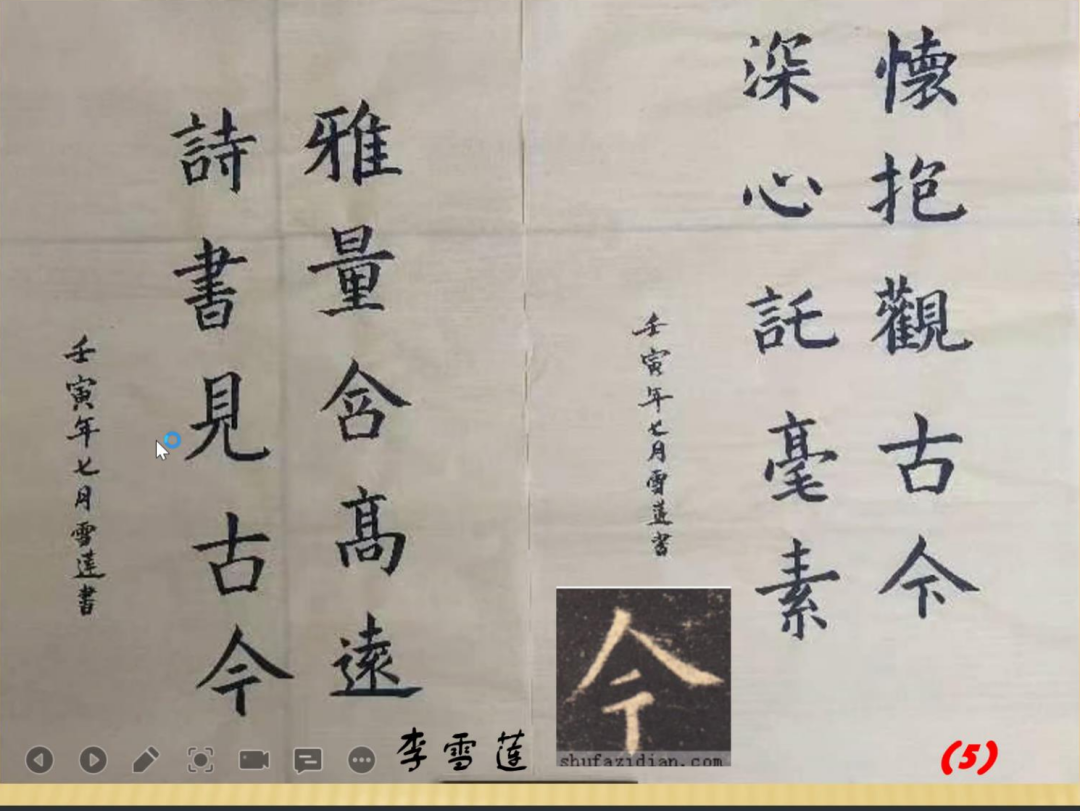 懷抱觀古今
深心託毫素
壬寅年七月雪蓮書
雅量含高遠
詩書見古今
壬寅年七月雪蓮書
今
shufazidian.com
李雪莲
(5)